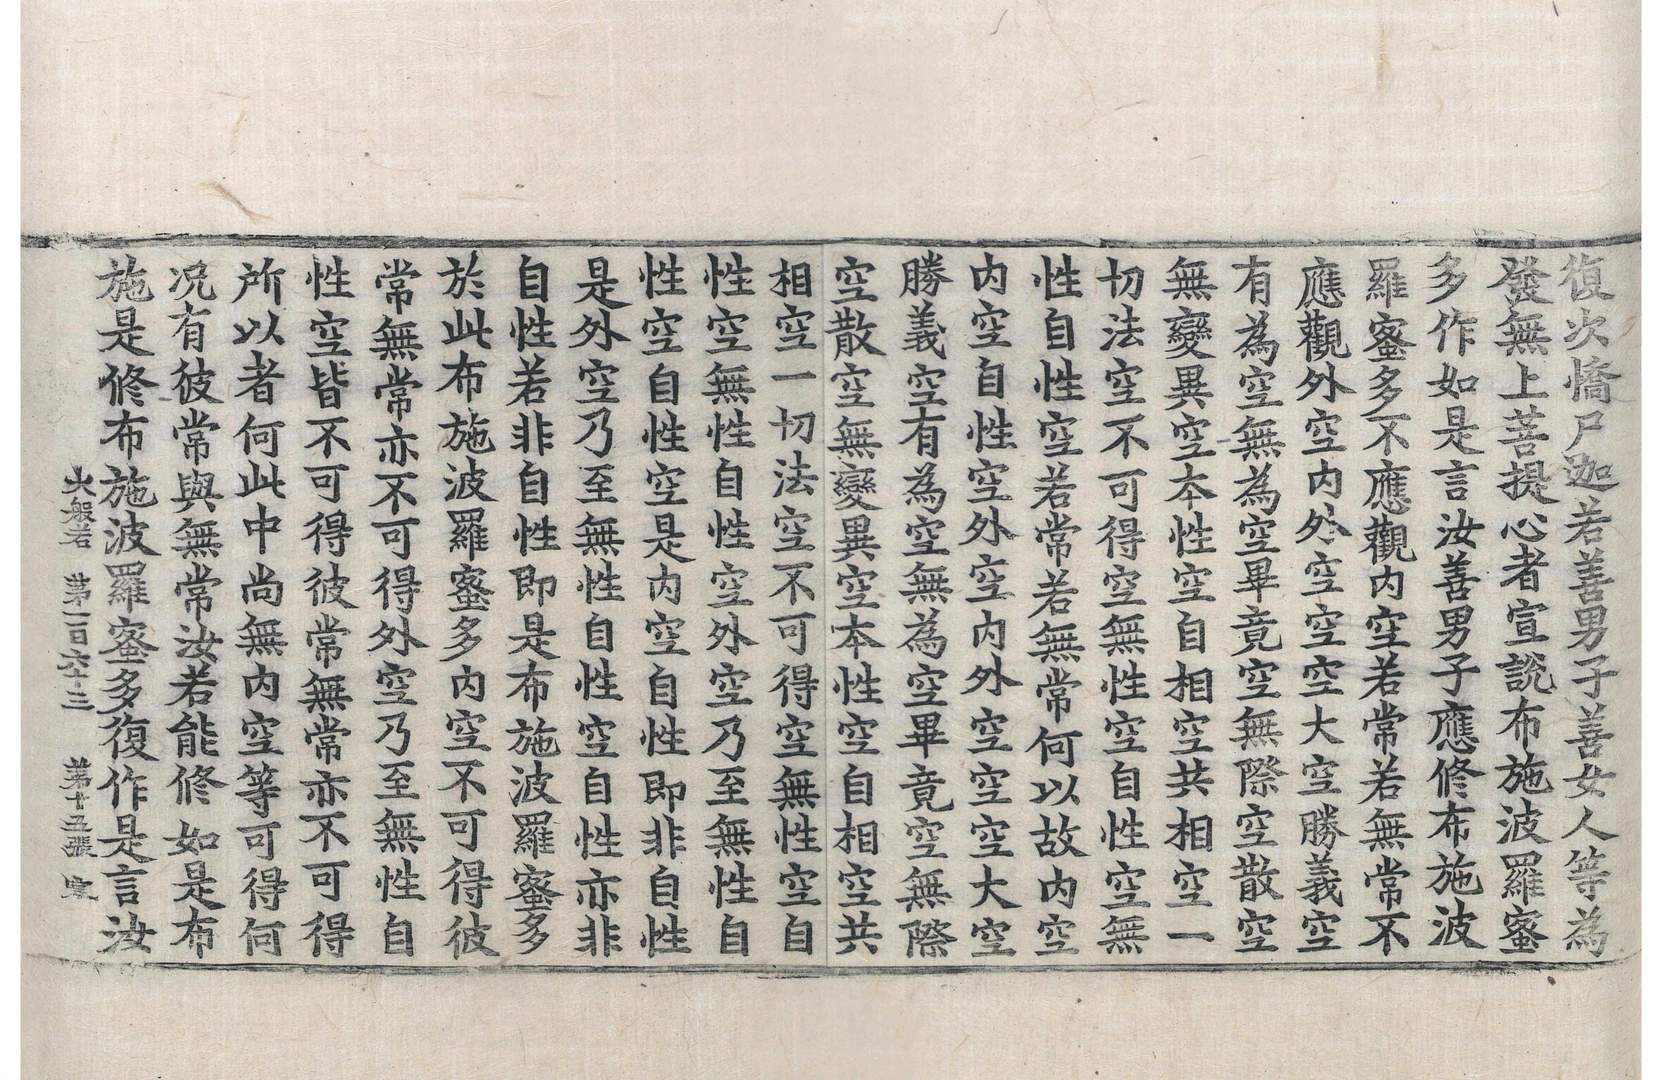 復次憍尸迦若善男子善女人等為
發無上菩提心者宣說布施波羅蜜
多作如是言汝善男子應修布施波
羅蜜多不應觀内空若常若無常不
應觀外空内外空空空大空勝義空
有為空無為空畢竟空無際空散空
無變異空本性空自相空共相空一
切法空不可得空無性空自性空無
性自性空若常若無常何以故内空
内空自性空外空内外空空空大空
勝義空有為空無為空畢竟空無際
空散空無變異空本性空自相空共
相空一切法空不可得空無性空自
性空無性自性空外空乃至無性自
性空自性空是内空自性即非自性
是外空乃至無性自性空自性亦非
自性若非自性即是布施波羅蜜多
於此布施波羅蜜多内空不可得彼
常無常亦不可得外空乃至無性自
性空皆不可得彼常無常亦不可得
所以者何此中尚無内空等可得何
况有彼常與無常汝若能修如是布
施是修布施波羅蜜多復作是言汝
大般若 第一百六十三 第十五張 寒